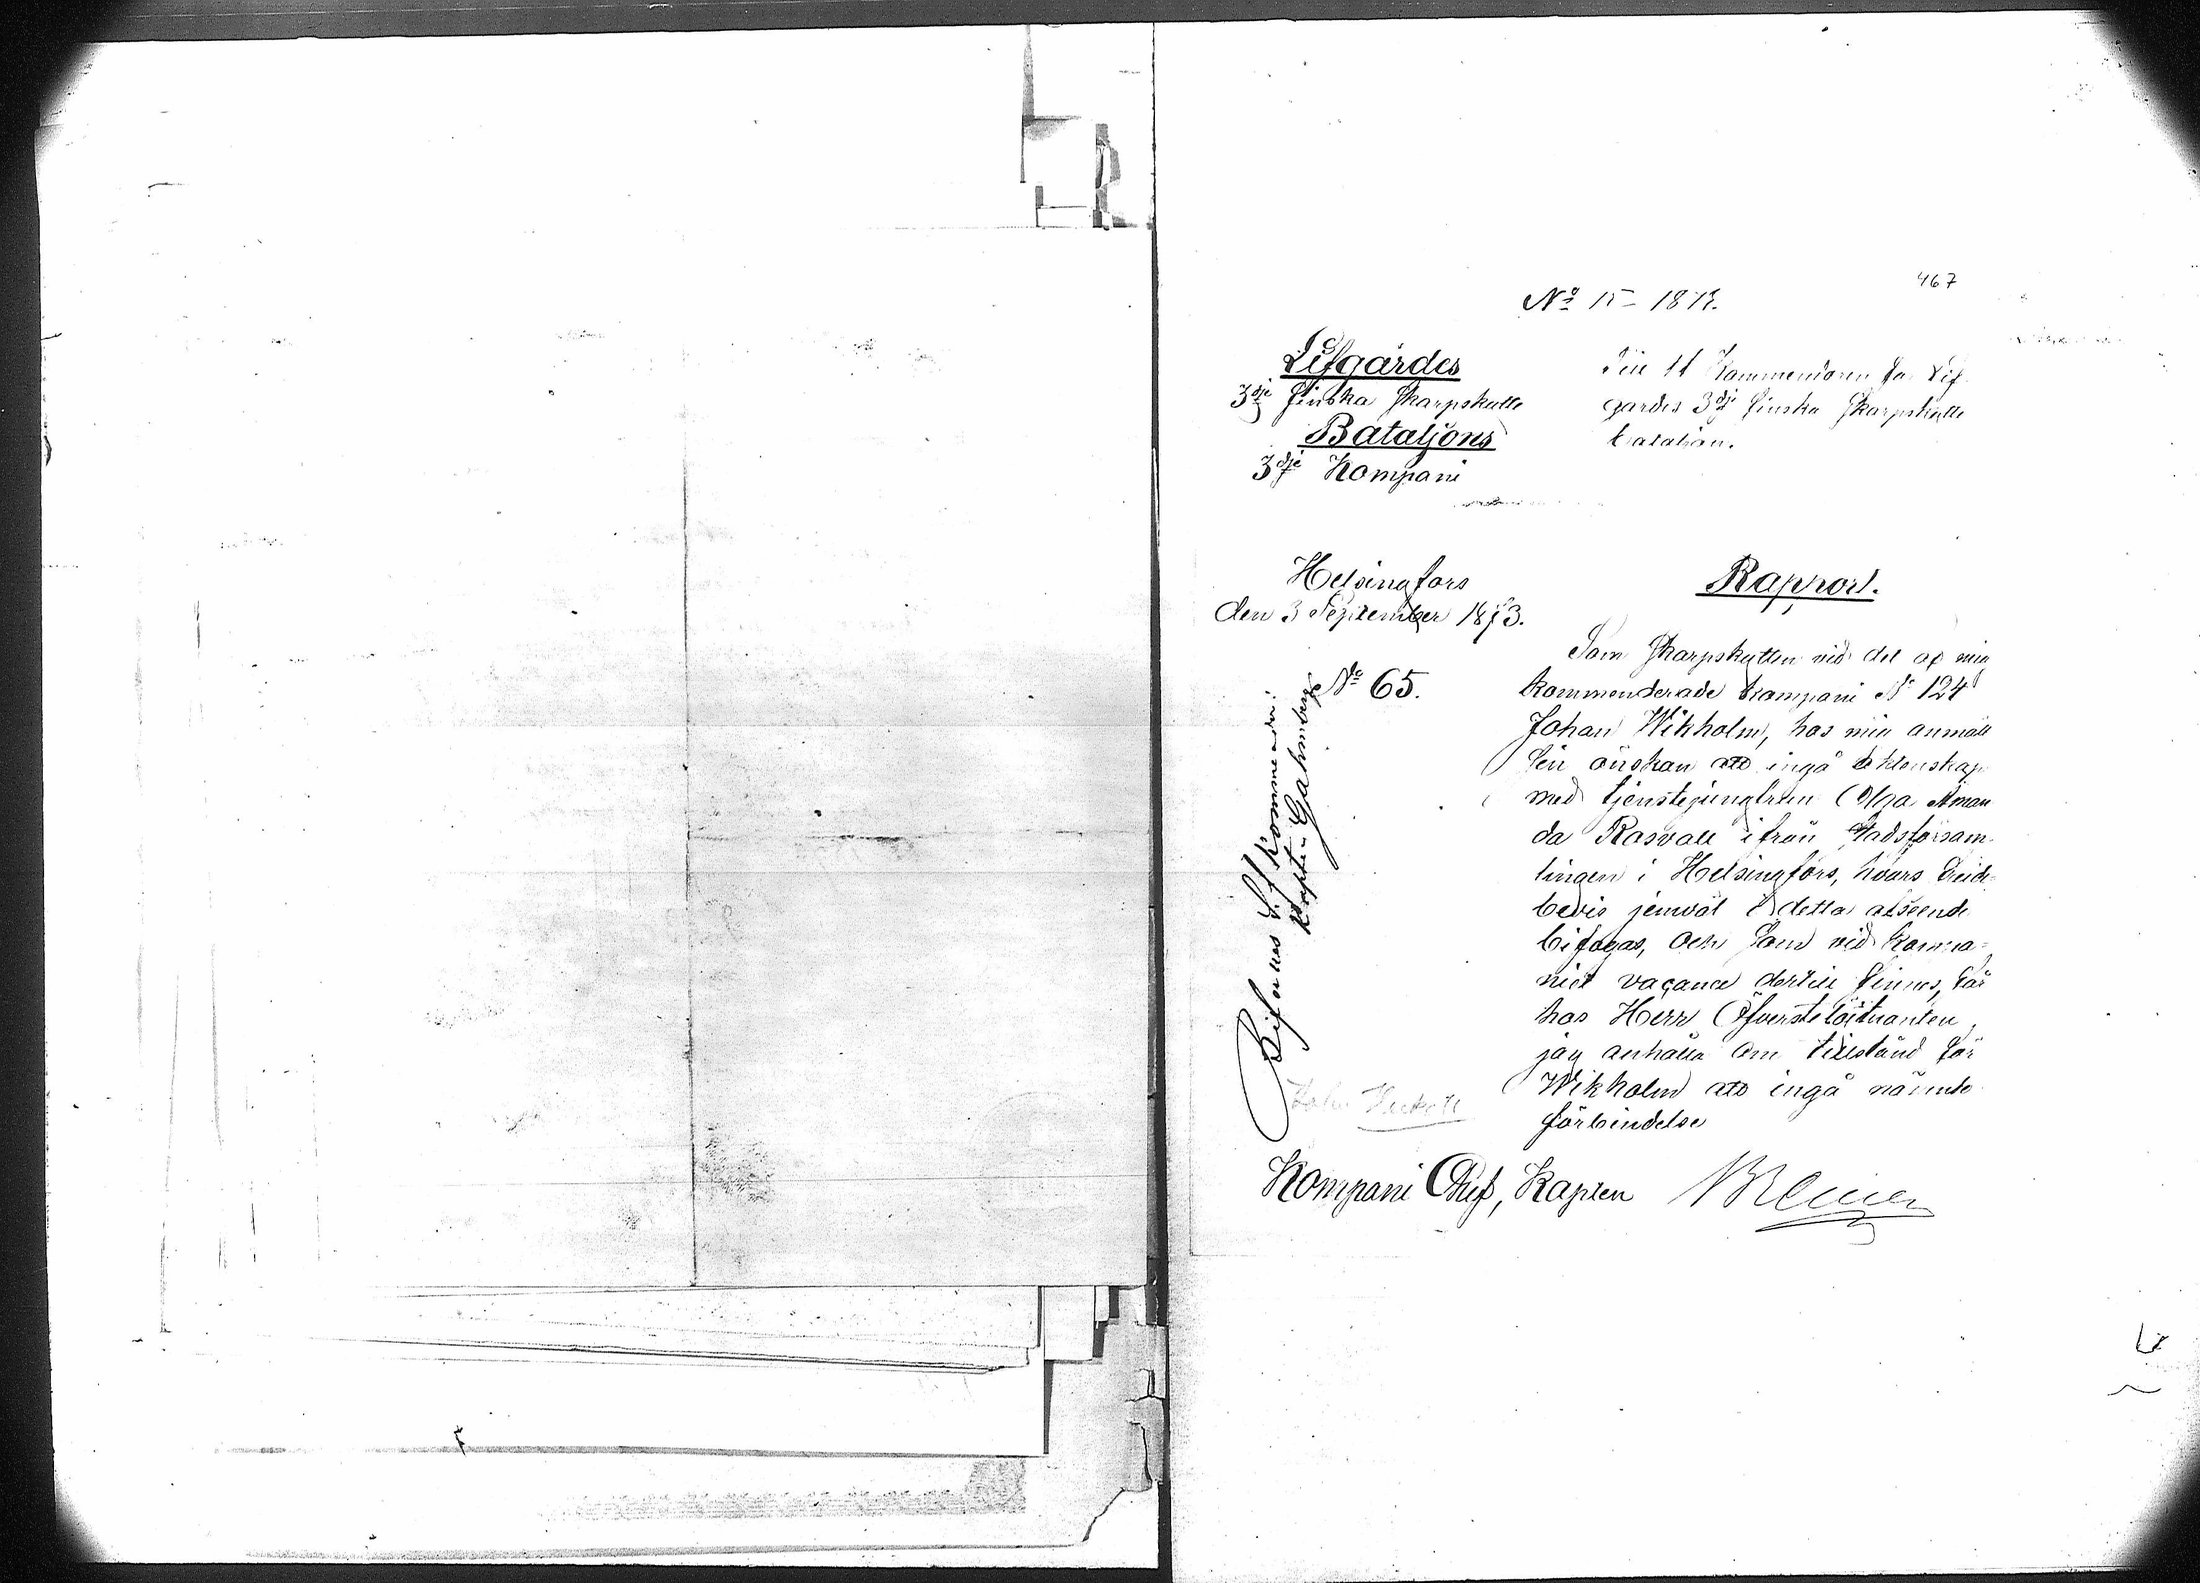 467
No 15 - 1873.
Lifgardes
3dje Finska Skarpskytte
Bataljons
3dje Kompani
Till tf Kommendören för Lif
gardes 3dje Finska Skarpskytte
bataljon.
Helsingfors
den 3 September 1873.
No 65.
Rapport.
Som Skarpskytten vid det af mig
kommenderade kompani No 124
Johan Wikholm, hos mig anmält
sin önskan att ingå äktenskap
med tjenstejungfrun Olga Aman
da Rosvall ifrån Stadsförsam-
lingen i Helsingfors, hvars Frejde-
bevis jemväl i detta afseende
bifogas, och som vid kompa-
niet vaçance dertill finnes, får
hos Herr Öfverstelöjtnanten
jag anhålla om tillstånd för
Wikholm att ingå nämnde
förbindelse
Bifalles t.f. Kommendör:
Kapten Gahmberg
Kompani Chef, Kapten Bremer